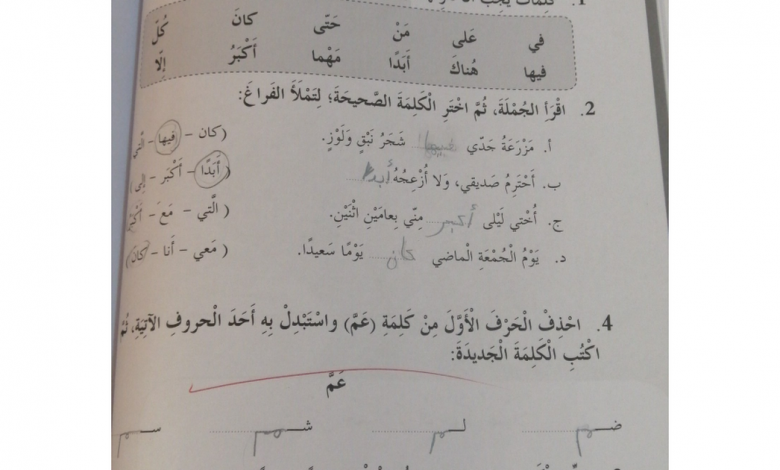 1. كَلِمات يَجِبُ أَنْ
في عَلى مَنْ حَتّى كانَ كُلّ
فيها هُناكَ أَبَدًا مَهْما أَكْبَرُ إِلّا
2. اقْرَأِ الجُمْلَةَ، ثُمَّ اخْتَرِ الْكَلِمَةَ الصَّحيحَةَ؛ لِتَمْلَأَ الفَراغَ:
أ. مَزْرَعَةُ جَدّي فيها شَجَرُ نَبْقٍ وَلَوْزٍ. (كان - فيها -
ب. أَحْتَرِمُ صَديقي، وَلا أُزْعِجُهُ أبدًا (أَبَدًا - أَكْبَر -
ج. أُخْتي لَيْلى أكبر مِنّي بِعامَيْنِ اثْنَيْنِ. (الَّتي - مَعَ -
د. يَوْمُ الْجُمْعَةِ الْماضي كان يَوْمًا سَعيدًا. (مَعي - أَنا - كانَ)
4. احْذِفْ الْحَرْفَ الْأَوَّلَ مِنْ كَلِمَةِ (عَمَّ) واسْتَبْدِلْ بِهِ أَحَدَ الْحروفِ الْآتِيَةِ، ثُمَّ
اكْتُبِ الْكَلِمَةَ الْجَديدَةَ:
عَمَّ
ضـم لـم شـم سـم